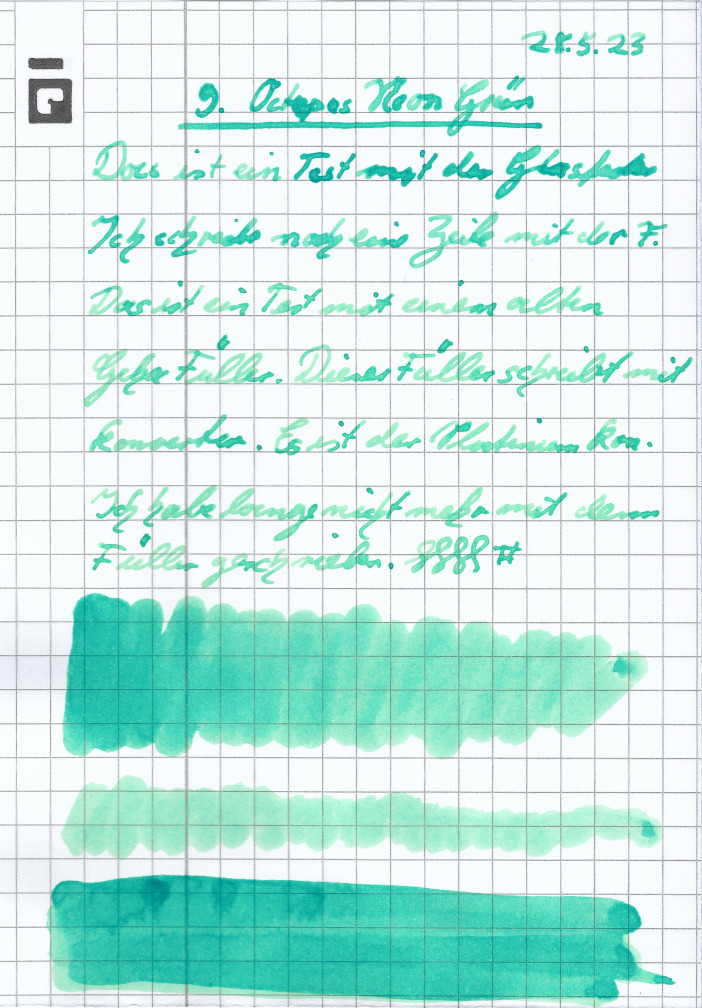 28.5.23
9. Octopus Neon Grün
Das ist ein Test mit der Glasfeder
Ich schreibe noch eine Zeile mit der F.
Das ist ein Test mit einem alten
Geha Füller. Dieser Füller schreibt mit
Konverter. Es ist der Platinum Kon.
Ich habe lange nicht mehr mit dem
Füller geschrieben.